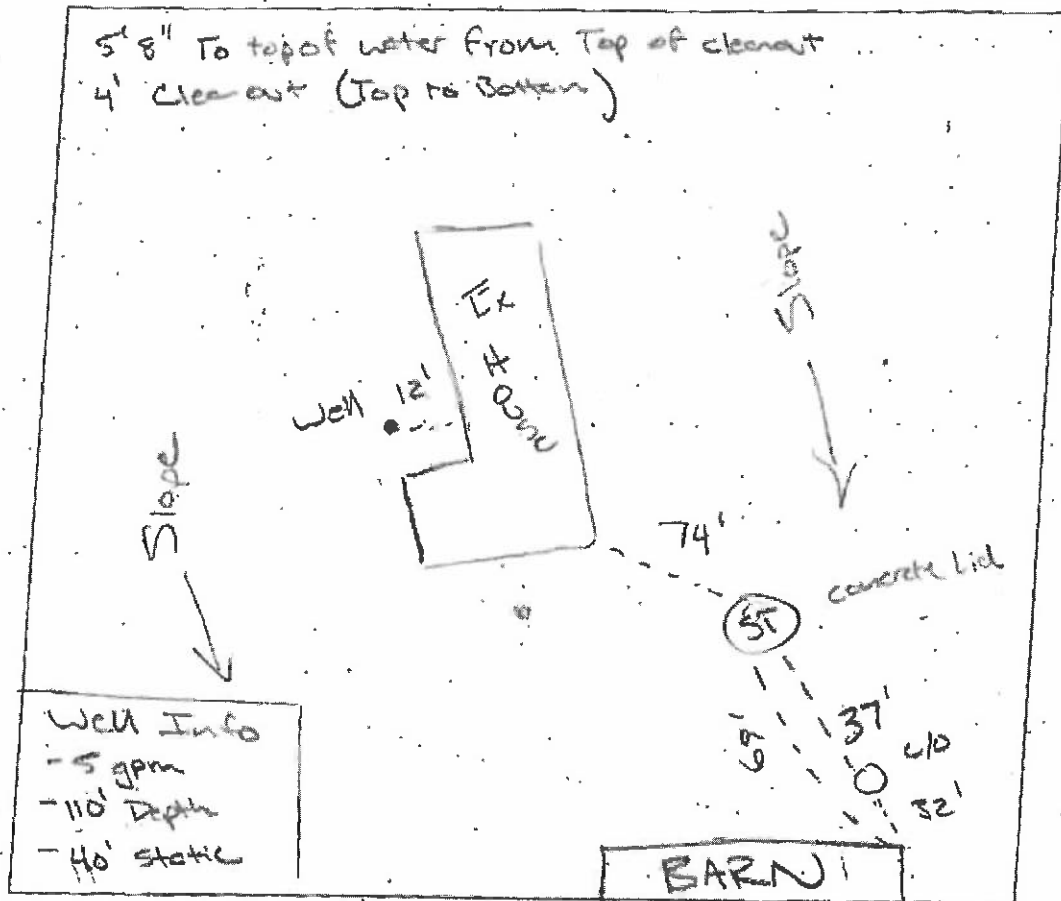 5' 8" To top of water from Top of cleanout
4' Clean out (Top to Bottom)
Slope
Ex
House
Well 12'
Slope
74'
concrete Lid
ST
69'
37'
c/o
32'
Well Info
- 5 gpm
- 110' Depth
- 40' static
BARN